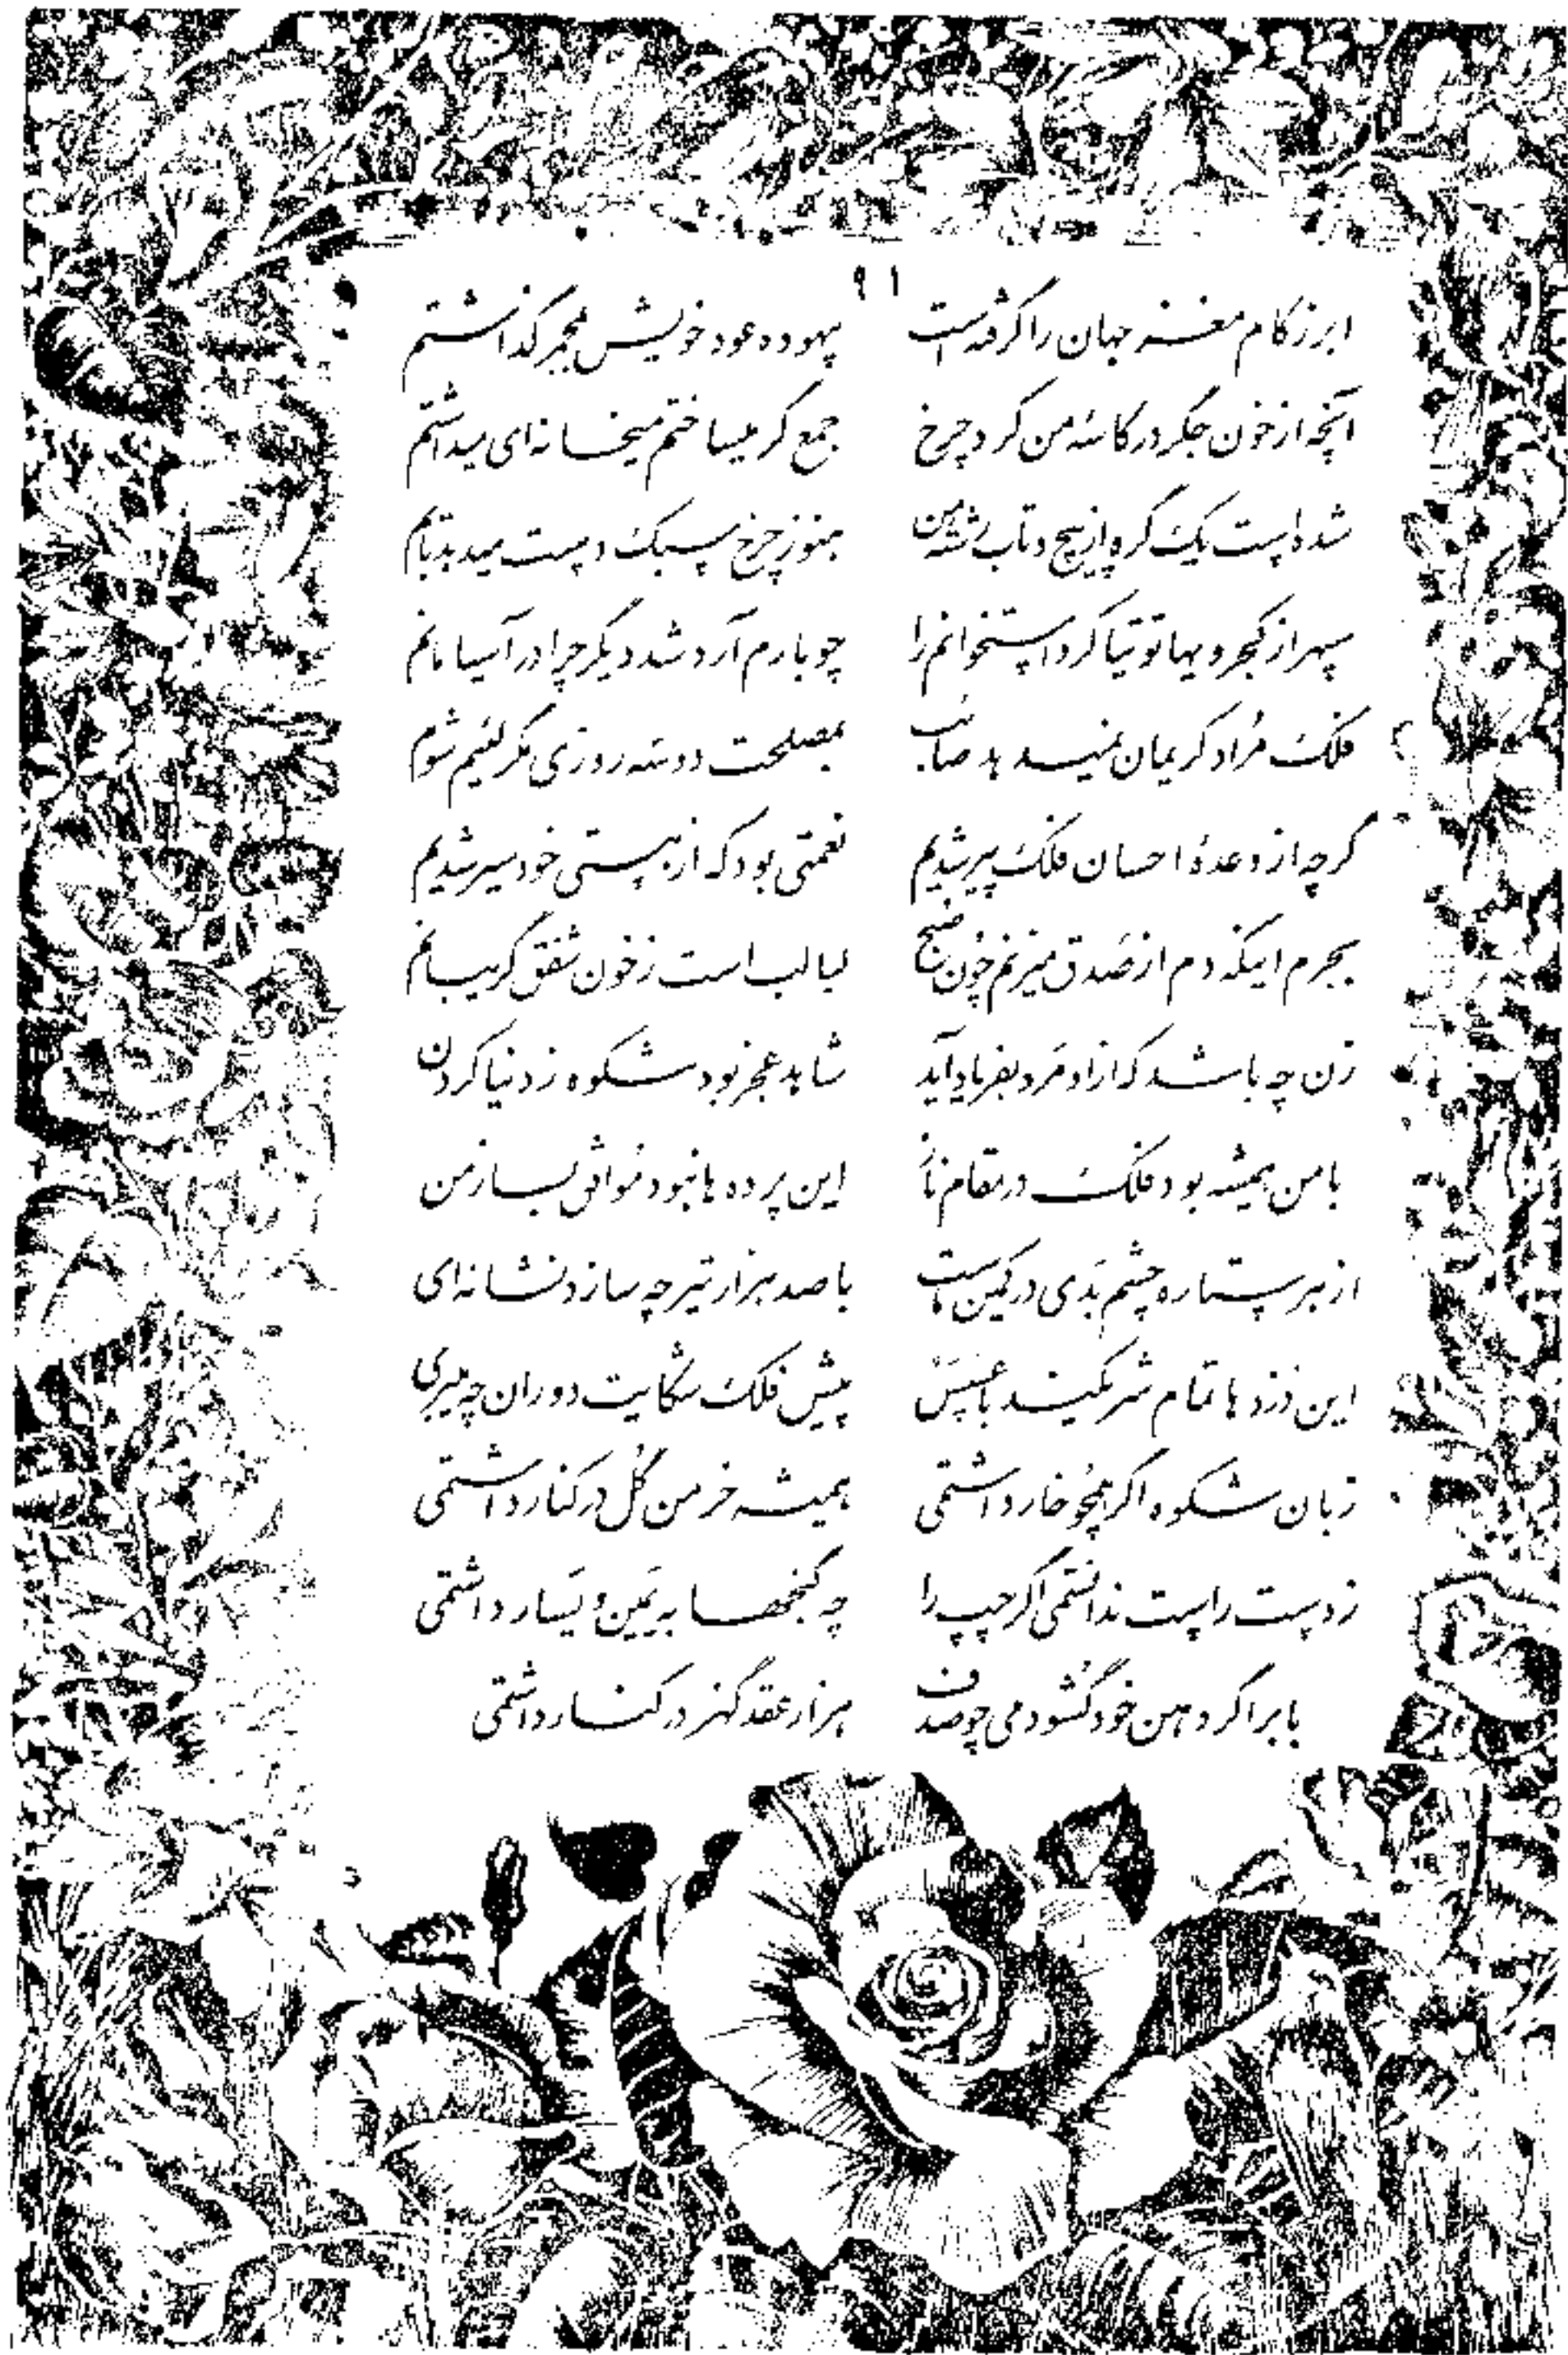 ۹۱
ابر زکام مغز جهان را گرفته است بیهوده عود خویش بمجمر گذاشتم
آنچه از خون جگر در کاسهٔ من کرد چرخ جمع گر میساختم میخانه‌ای میداشتم
شده است یک گره از پیچ و تاب رشتهٔ من هنوز چرخ سبک دست میدهد تابم
سپهر از کجرویها توتیا کرد استخوانم را چو بارم آرد شد دیگر چرا در آسیا مانم
فلک مُراد کریمان نمیدهد صائب بمصلحت دو سه روزی مگر لئیم شوم
گرچه از وعدهٔ احسان فلک پیر شدیم نعمتی بود که از هستی خود سیر شدیم
بجرم اینکه دم از صدق میزنم چون صبح لبالب است ز خون شفق گریبانم
زن چه باشد که ازاو مَرد بفریاد آید شاهد عجز بود شکوه ز دنیا کردن
با من همیشه بود فلک در مقام ناز این پرده‌ها نبود موافق بساز من
از هر ستاره چشم بَدی در کمین ماست با صد هزار تیر چه سازد نشانه‌ای
این دُزدها تمام شریکند با عَسَس پیش فلک شکایت دوران چه میبری
زبان شکوه اگر همچو خار داشتمی همیشه خرمن گُل در کنار داشتمی
ز دست راست ندانستمی اگر چپ را چه گنجها به یَمین و یَسار داشتمی
بابر اگر دهن خود گشودمی چو صدف هزار عقد گهر در کنار داشتمی